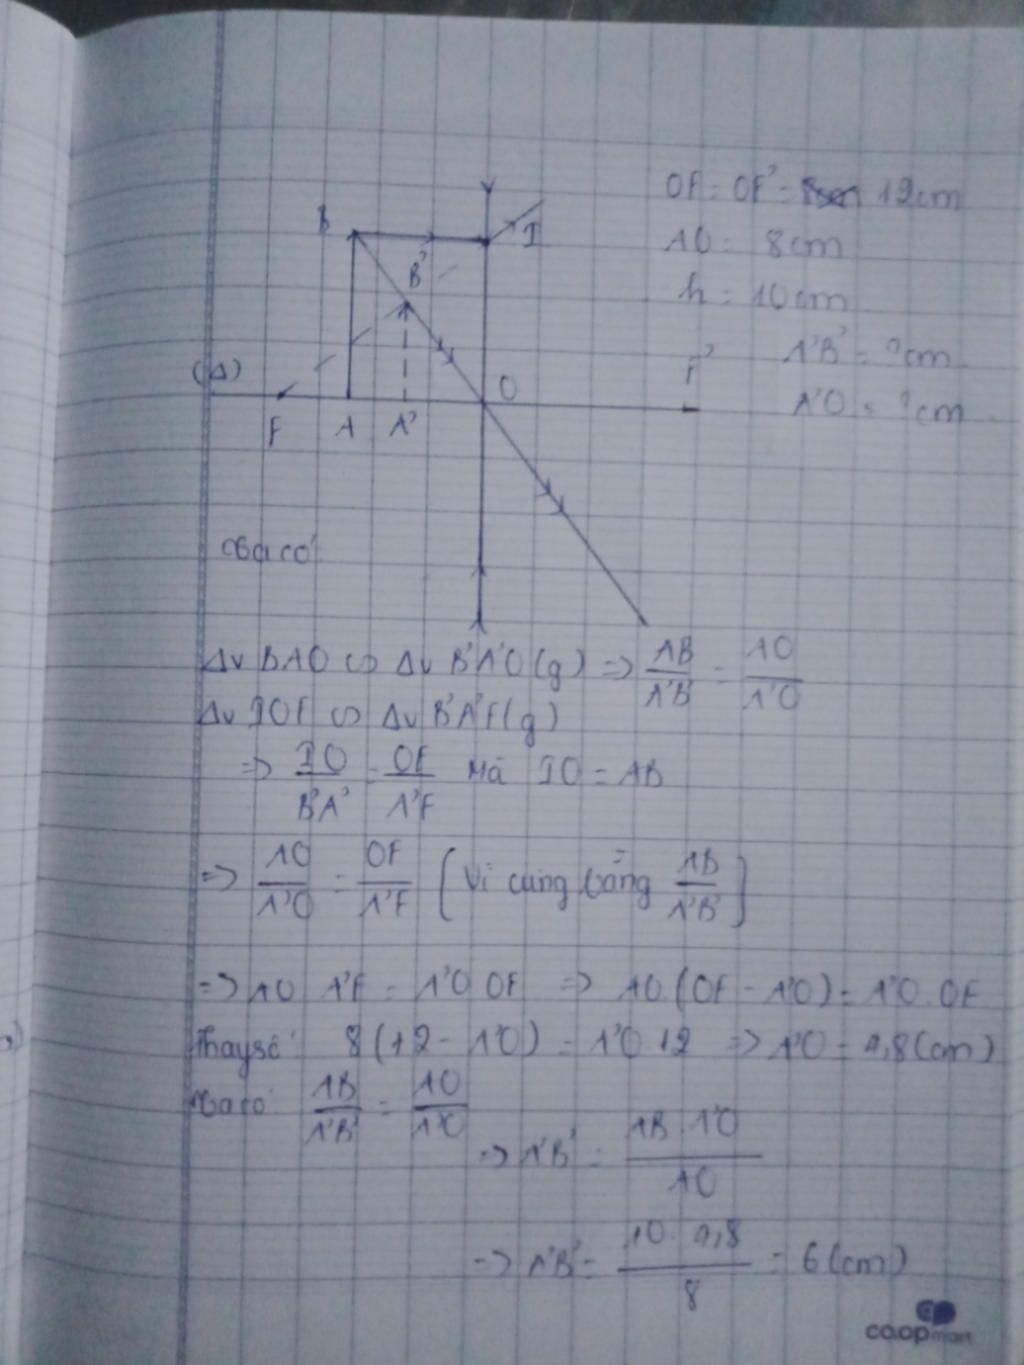 OF = OF' = 12cm
AO = 8cm
h = 10cm
A'B' = ?cm
A'O = ?cm
B
I
B'
(Δ)
F'
O
F A A'
Ta có:
Δv BAO ∽ Δv B'A'O (g) => AB/A'B' = AO/A'O
Δv IOF ∽ Δv B'A'F (g)
=> IO/B'A' = OF/A'F Mà IO = AB
=> AO/A'O = OF/A'F (Vì cùng bằng AB/A'B')
=> AO . A'F = A'O . OF => AO . (OF - A'O) = A'O . OF
Thay số: 8 (12 - A'O) = A'O . 12 => A'O = 4,8 (cm)
Ta có: AB/A'B' = AO/A'O
=> A'B' = AB . A'O / AO
=> A'B' = 10 . 4,8 / 8 = 6 (cm)
co.opmart